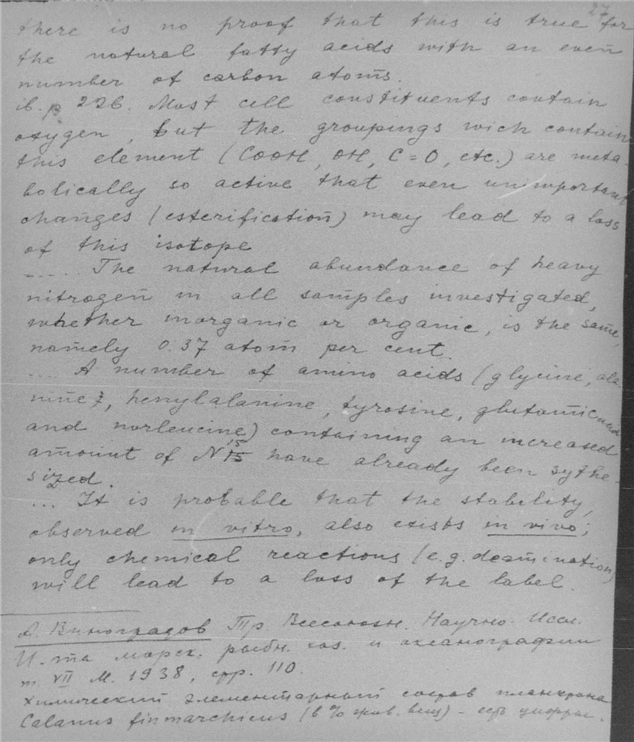 27
there is no proof that this is true for
the natural fatty acids with an even
number of carbon atoms.
ib. p 226. Most cell constituents contain
oxygen, but the groupings wich contain
this element (COOH, OH, C=O, etc.) are meta
bolically so active that even unimportant
changes (esterification) may lead to a loss
of this isotope
..... The natural abundance of heavy
nitrogen in all samples investigated,
whether inorganic or organic, is the same,
namely 0.37 atom per cent.
.... A number of amino acids (glycine, ala
nine, henylalanine, tyrosine, glutamic
and norleucine) containing an increased
amount of N15 have already been sythe
sized.
... It is probable that the stability,
observed in vitro, also exists in vivo;
only chemical reactions (e.g. deamination)
will lead to a loss of the label.
А. Виноградов Тр. Всесоюзн. Научно. Иссл.
И-та морск. рыбн. хоз. и океанографии
т. VII М. 1938, стр. 110.
Химический элементарный состав планктона
Calanus finmarchicus (в % жив. вещ) - цифры.